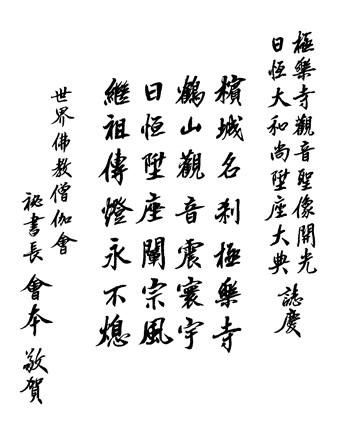 極樂寺觀音聖像開光
日恒大和尚陞座大典 誌慶
檳城名刹極樂寺
鶴山觀音震寰宇
日恒陞座闡宗風
繼祖傳燈永不熄
世界佛教僧伽會
祕書長 會本 敬賀